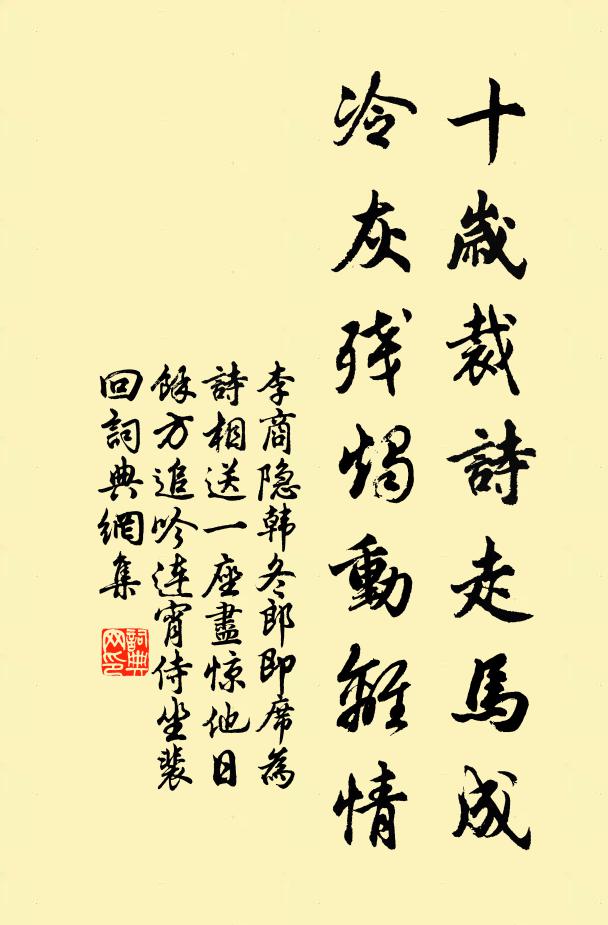 十歲裁詩走馬成
冷灰残燭動離情
李商隐韩冬郎即席為
詩相送一座盡惊他日
餘方追吟连宵侍坐裴
回詞典網集
詞典网印